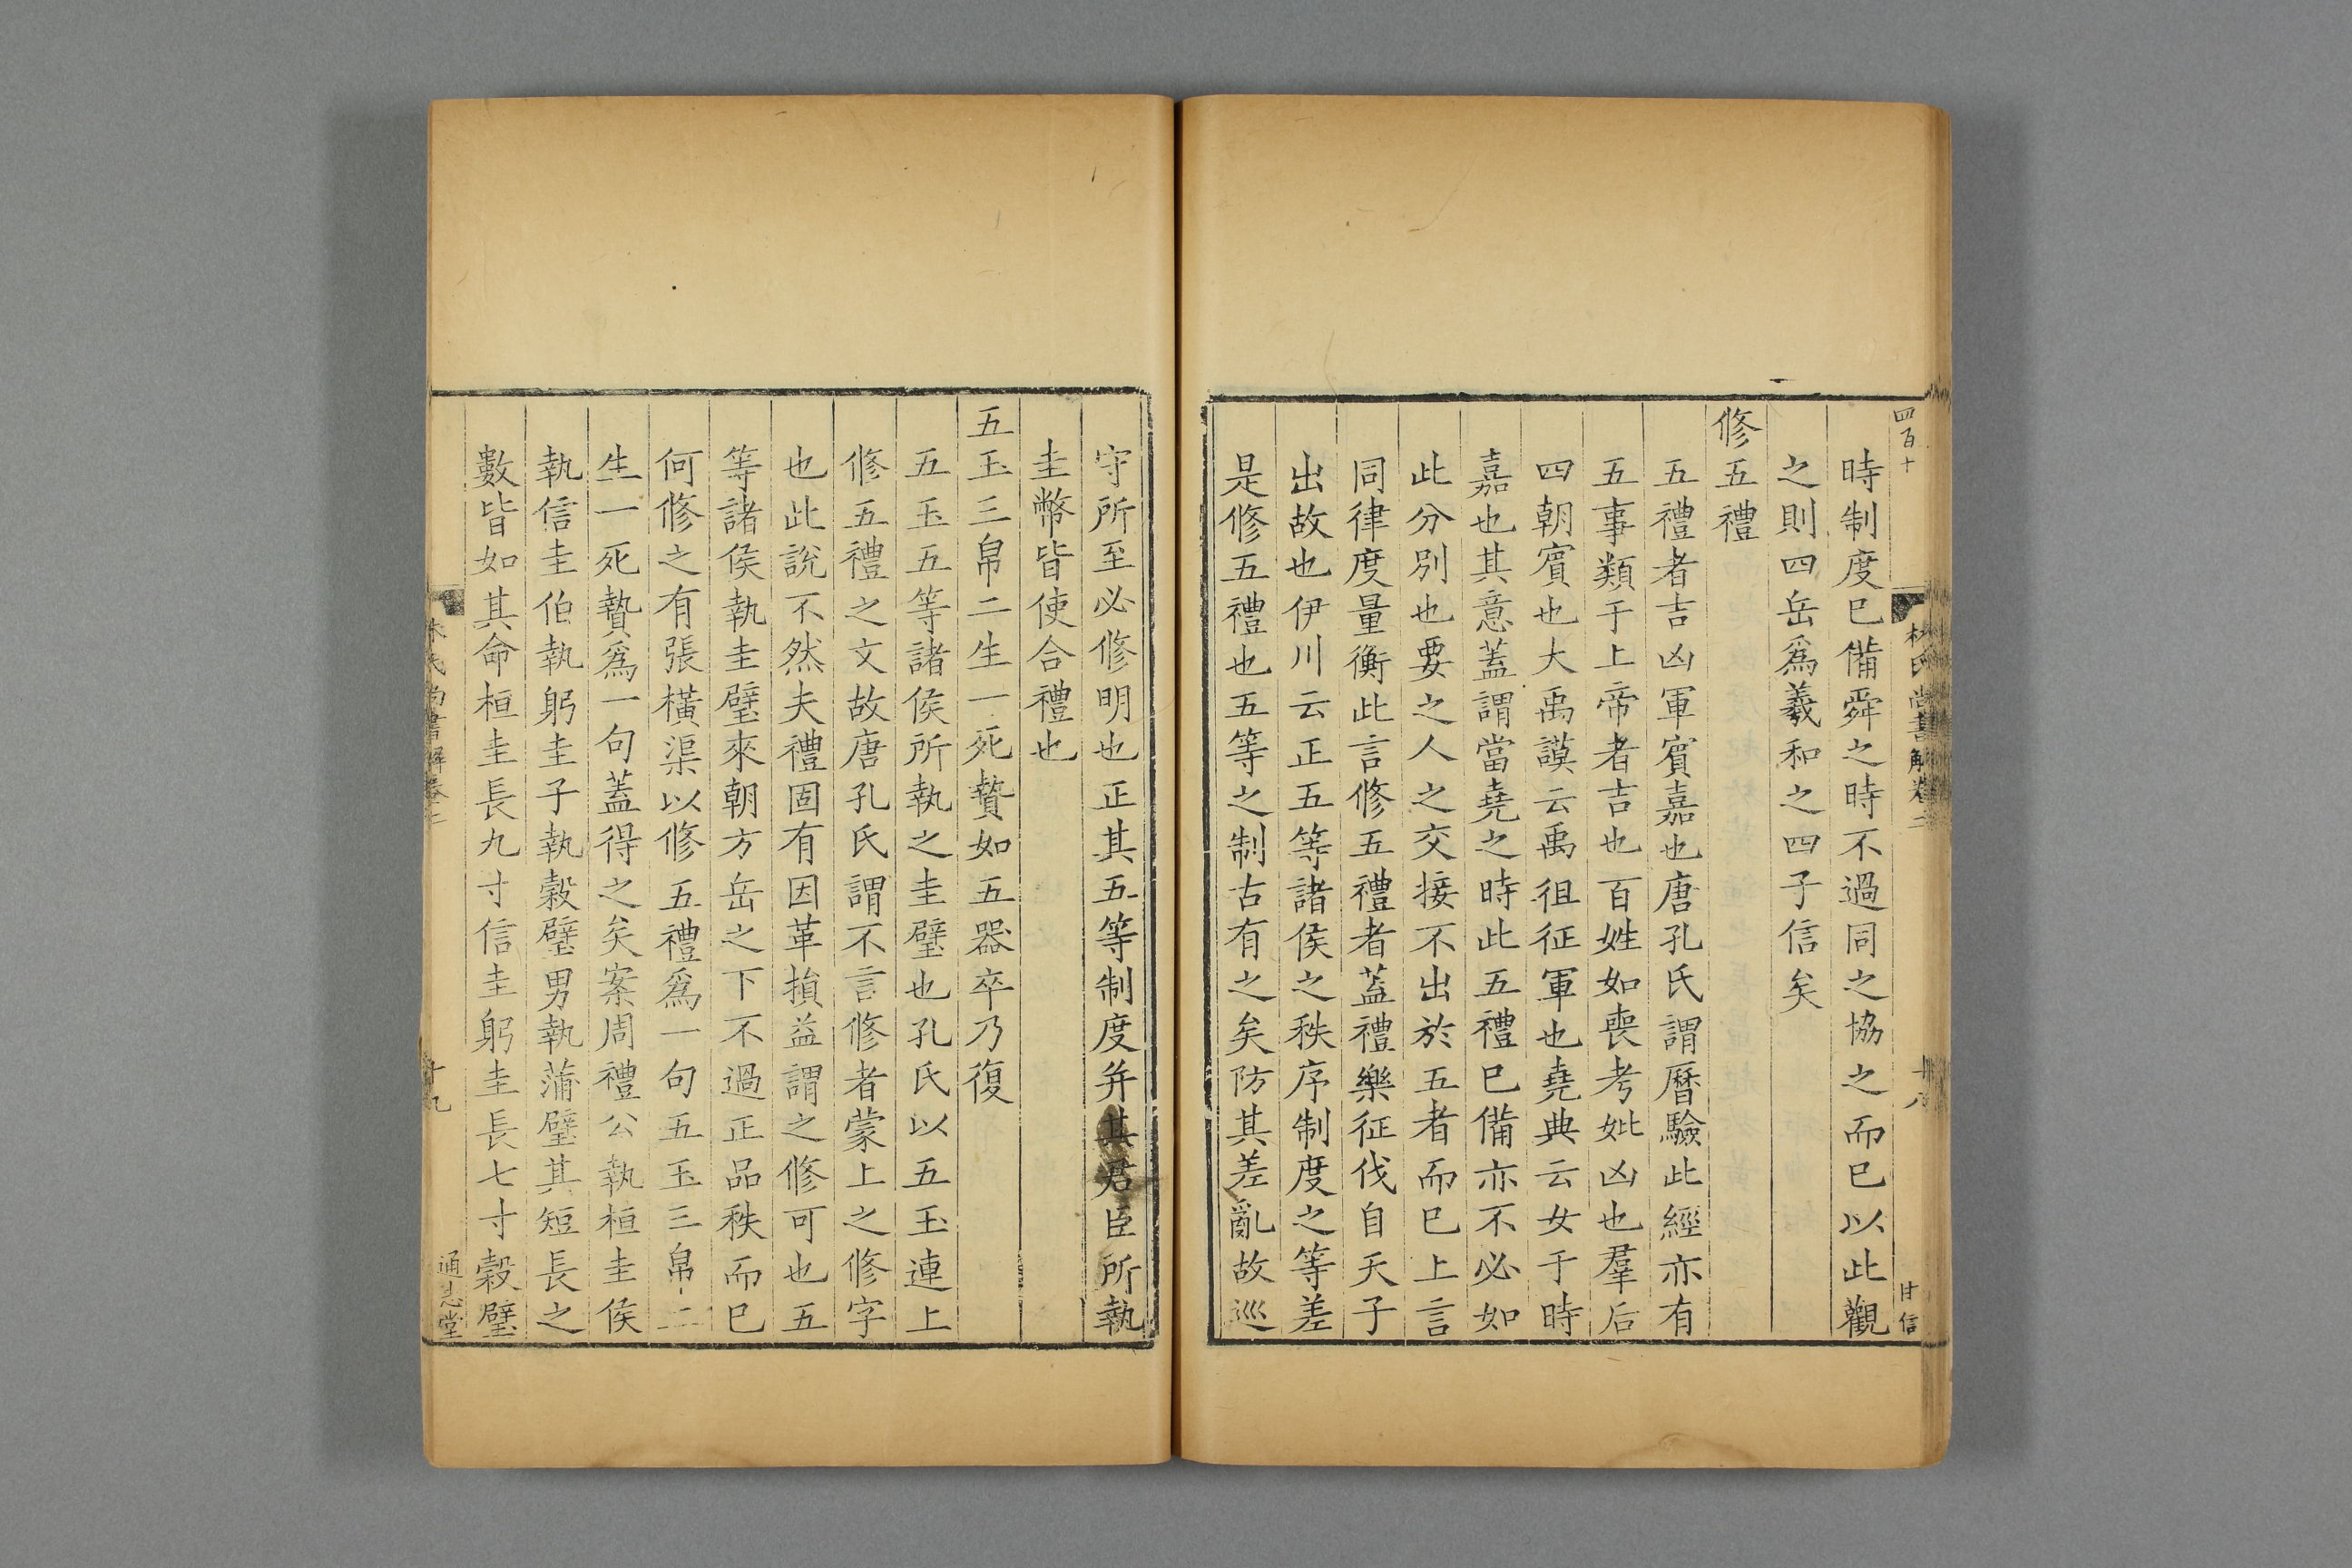 四百十
林氏尚書解卷二
十八
甘信
時制度巳備舜之時不過同之協之而巳以此觀
之則四岳爲羲和之四子信矣
修五禮
五禮者吉凶軍賓嘉也唐孔氏謂曆驗此經亦有
五事類于上帝者吉也百姓如喪考妣凶也羣后
四朝賓也大禹謨云禹徂征軍也堯典云女于時
嘉也其意蓋謂當堯之時此五禮巳備亦不必如
此分別也要之人之交接不出於五者而巳上言
同律度量衡此言修五禮者蓋禮樂征伐自天子
出故也伊川云正五等諸侯之秩序制度之等差
是修五禮也五等之制古有之矣防其差亂故巡
守所至必修明也正其五等制度并其君臣所執
圭幣皆使合禮也
五玉三帛二生一死贄如五器卒乃復
五玉五等諸侯所執之圭璧也孔氏以五玉連上
修五禮之文故唐孔氏謂不言修者蒙上之修字
也此說不然夫禮固有因革損益謂之修可也五
等諸侯執圭璧來朝方岳之下不過正品秩而巳
何修之有張橫渠以修五禮爲一句五玉三帛二
生一死贄爲一句蓋得之矣案周禮公執桓圭侯
執信圭伯執躬圭子執穀璧男執蒲璧其短長之
數皆如其命桓圭長九寸信圭躬圭長七寸穀璧
林氏尚書解卷二
十九
通志堂